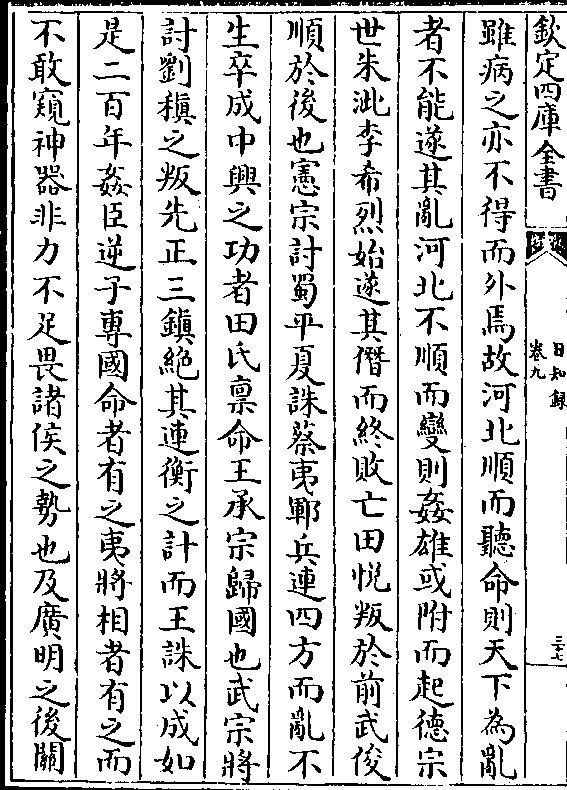 欽定四庫全書
日知錄
卷九
三七
雖病之亦不得而外焉故河北順而聽命則天下為亂
者不能遂其亂河北不順而變則姦雄或附而起德宗
世朱泚李希烈始遂其僭而終敗亡田悅叛於前武俊
順於後也憲宗討蜀平夏誅蔡夷鄆兵連四方而亂不
生卒成中興之功者田氏稟命王承宗歸國也武宗將
討劉稹之叛先正三鎮絶其連衡之計而王誅以成如
是二百年姦臣逆子專國命者有之夷將相者有之而
不敢窺神器非力不足畏諸侯之勢也及廣明之後關